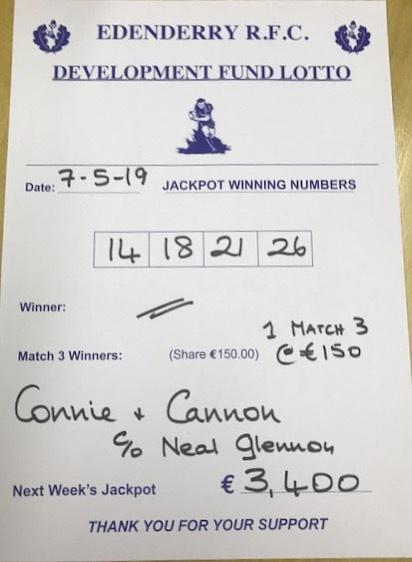 EDENDERRY R.F.C.
DEVELOPMENT FUND LOTTO
Date: 7-5-19 JACKPOT WINNING NUMBERS
14 18 21 26
Winner:
1 MATCH 3
Match 3 Winners: (Share €150.00) @ €150
Connie + Cannon
c/o Neal Glennon
Next Week's Jackpot € 3,400
THANK YOU FOR YOUR SUPPORT